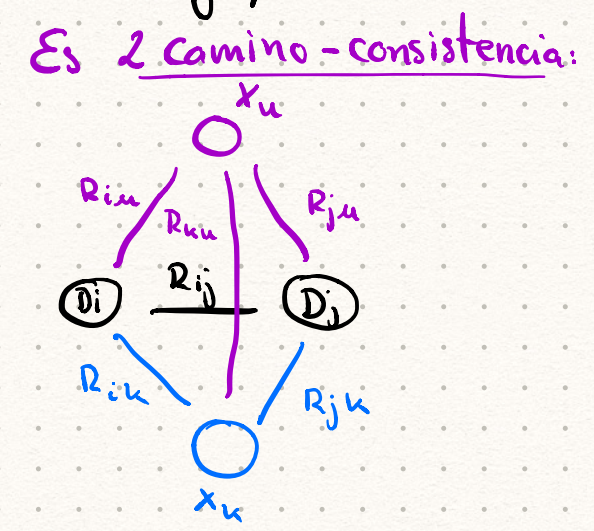 Es 2 camino-consistencia:
xu
Riu
Rku
Rju
Rij
Di
Dj
Rik
Rjk
xk